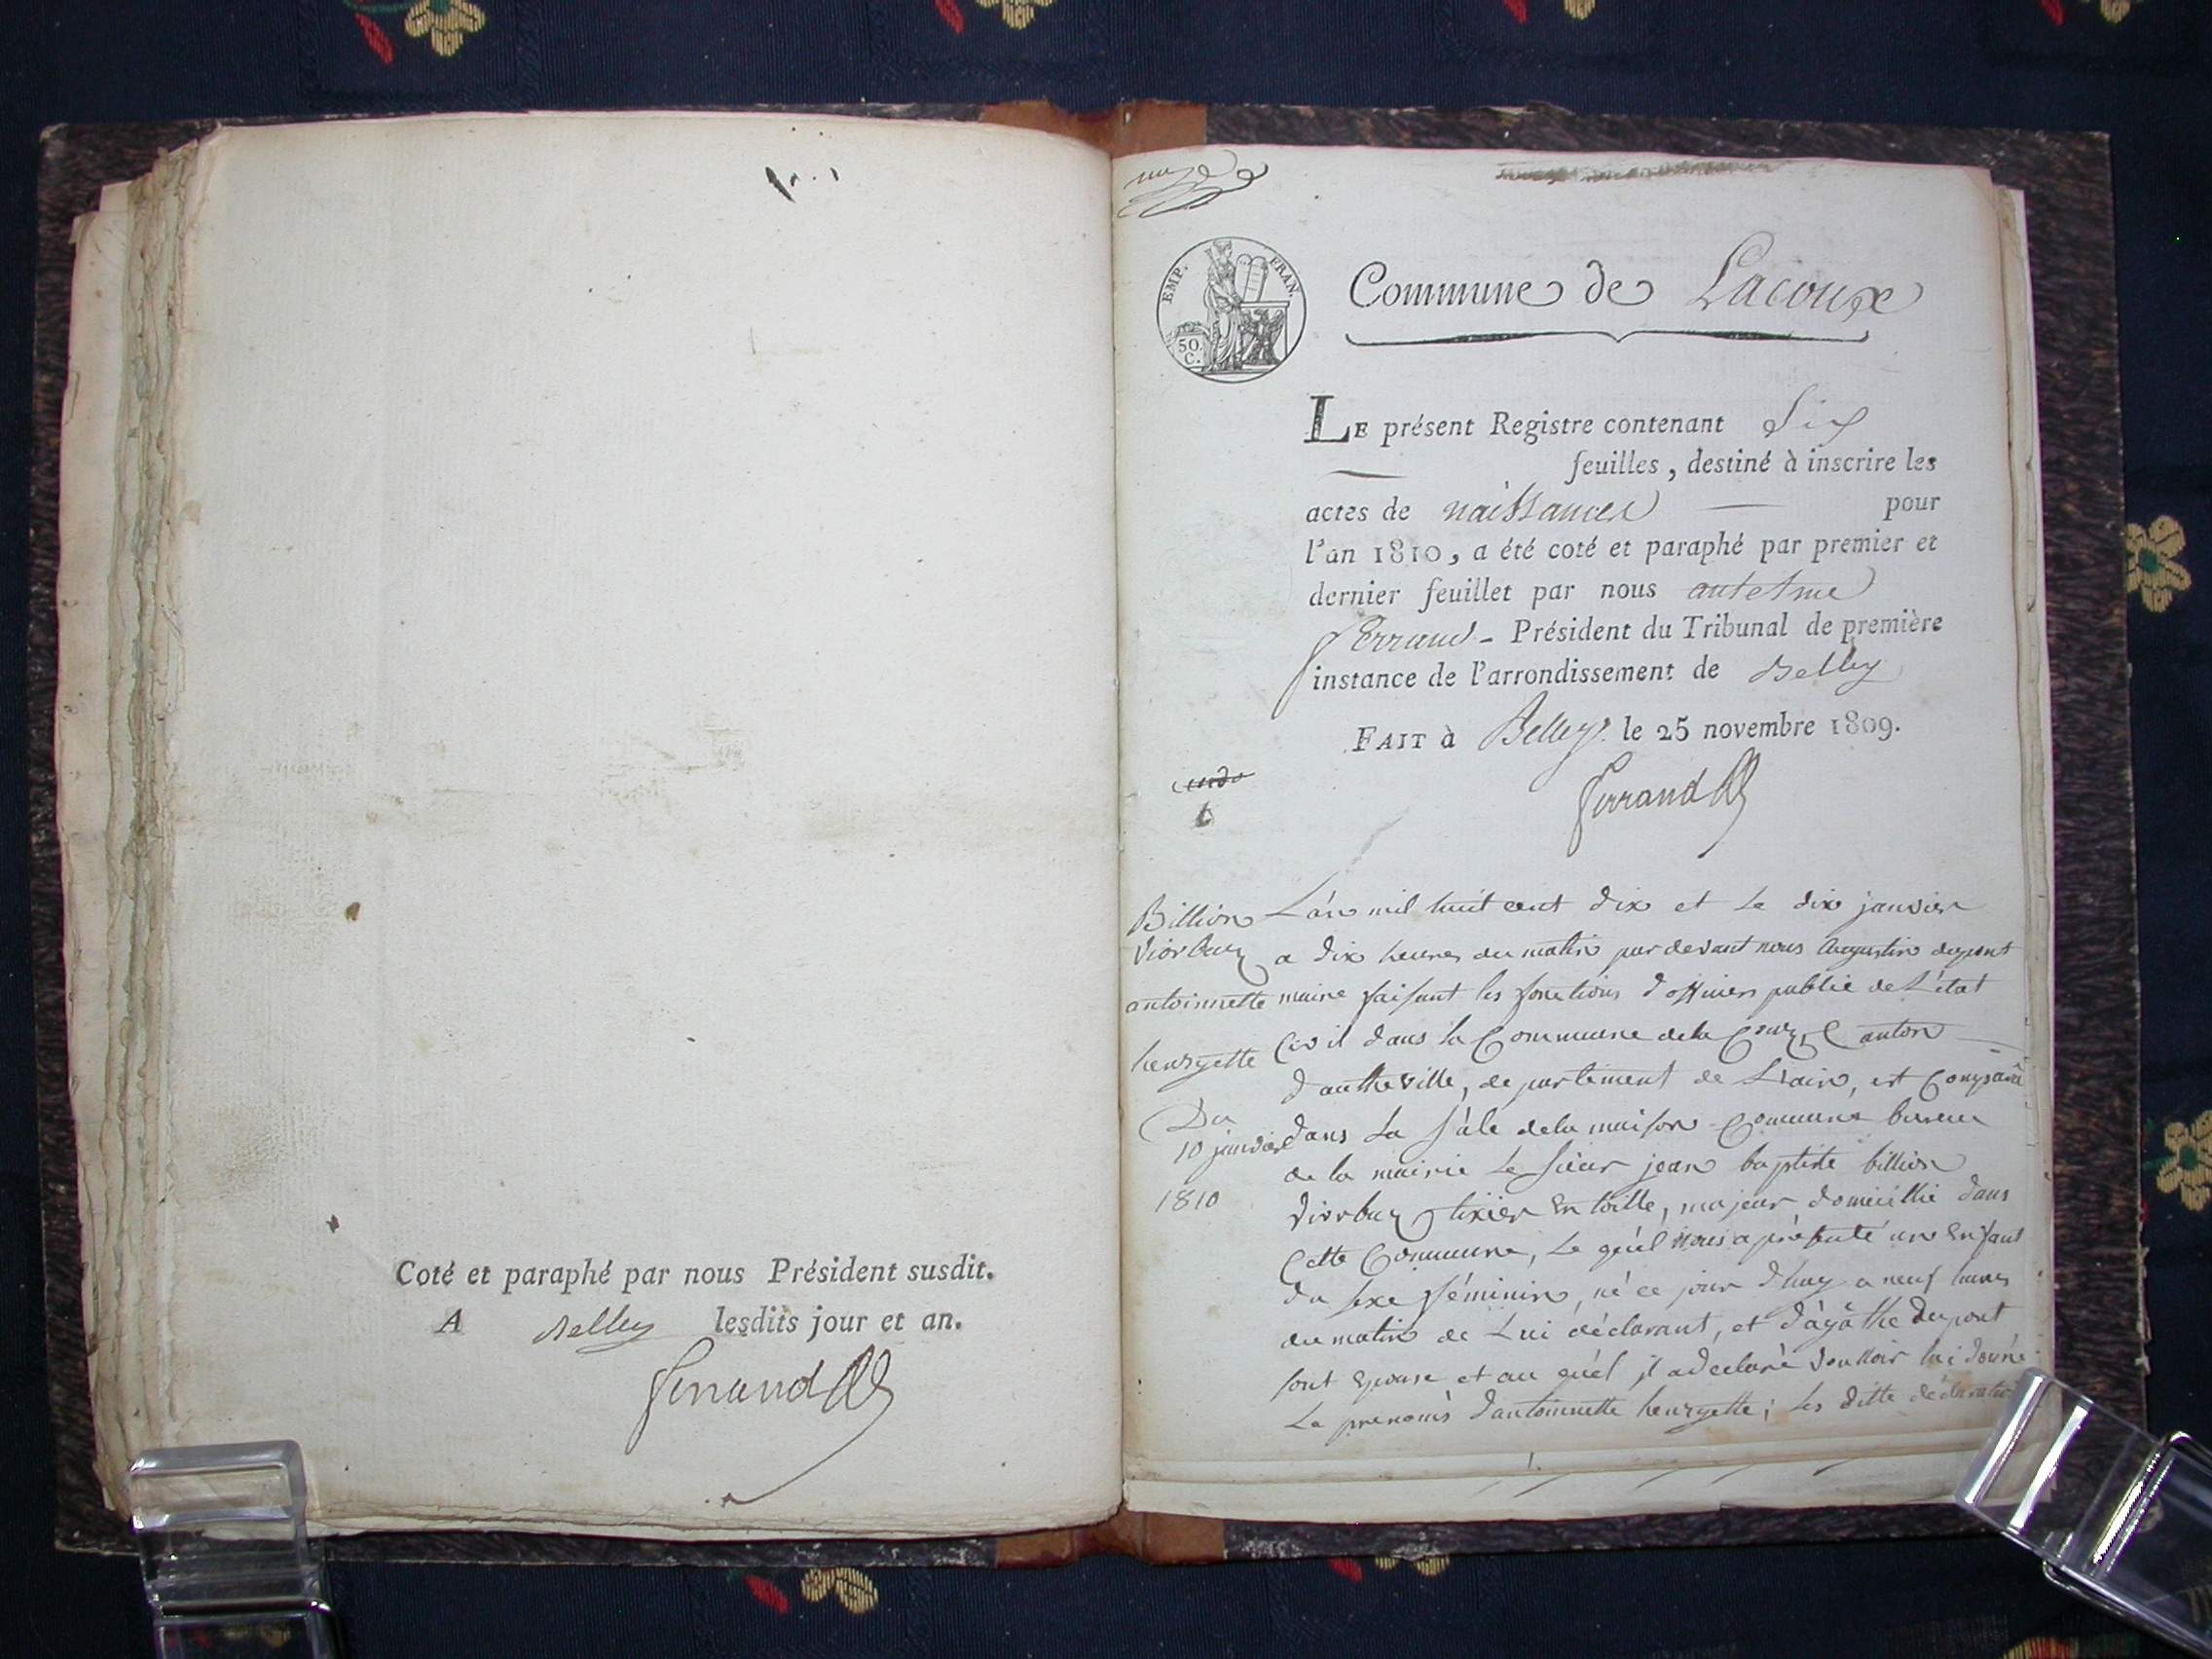 Coté et paraphé par nous Président susdit.
A Belley lesdits jour et an.
ferrand
EMP. FRAN.
50.
C.
Commune de Lacoux
LE présent Registre contenant Six
feuilles, destiné à inscrire les
actes de naissances pour
l'an 1810, a été coté et paraphé par premier et
dernier feuillet par nous antelme
ferrand - Président du Tribunal de première
instance de l'arrondissement de Belley
FAIT à Belley le 25 novembre 1809.
ferrand
Billion
Viorbuz
antoinnette
henryette
Du
10 janvier
1810
L'an mil huit cent dix et le dix janvier
a dix heures du matin par devant nous Augustin dupont
maire faisant les fonctions d'officier public de L'état
Civil dans la Commune de la Couz, Canton
d'autheville, departement de L'ain, est Comparû
dans La sâle de la maison Commune bureau
de la mairie Le sieur jean baptiste billion
Viorbuz tixier En toille, majeur domicillié dans
Cette Commune, Le quél nous a présenté un Enfant
du sexe féminin, né ce jour d'huy a neuf heures
du matin de Lui déclarant, et d'àgâthe Dupont
sont Epouse et au quél il a declaré vouloir lui donné
Le prenoms d'antoinnette henryette; les ditte déclaration